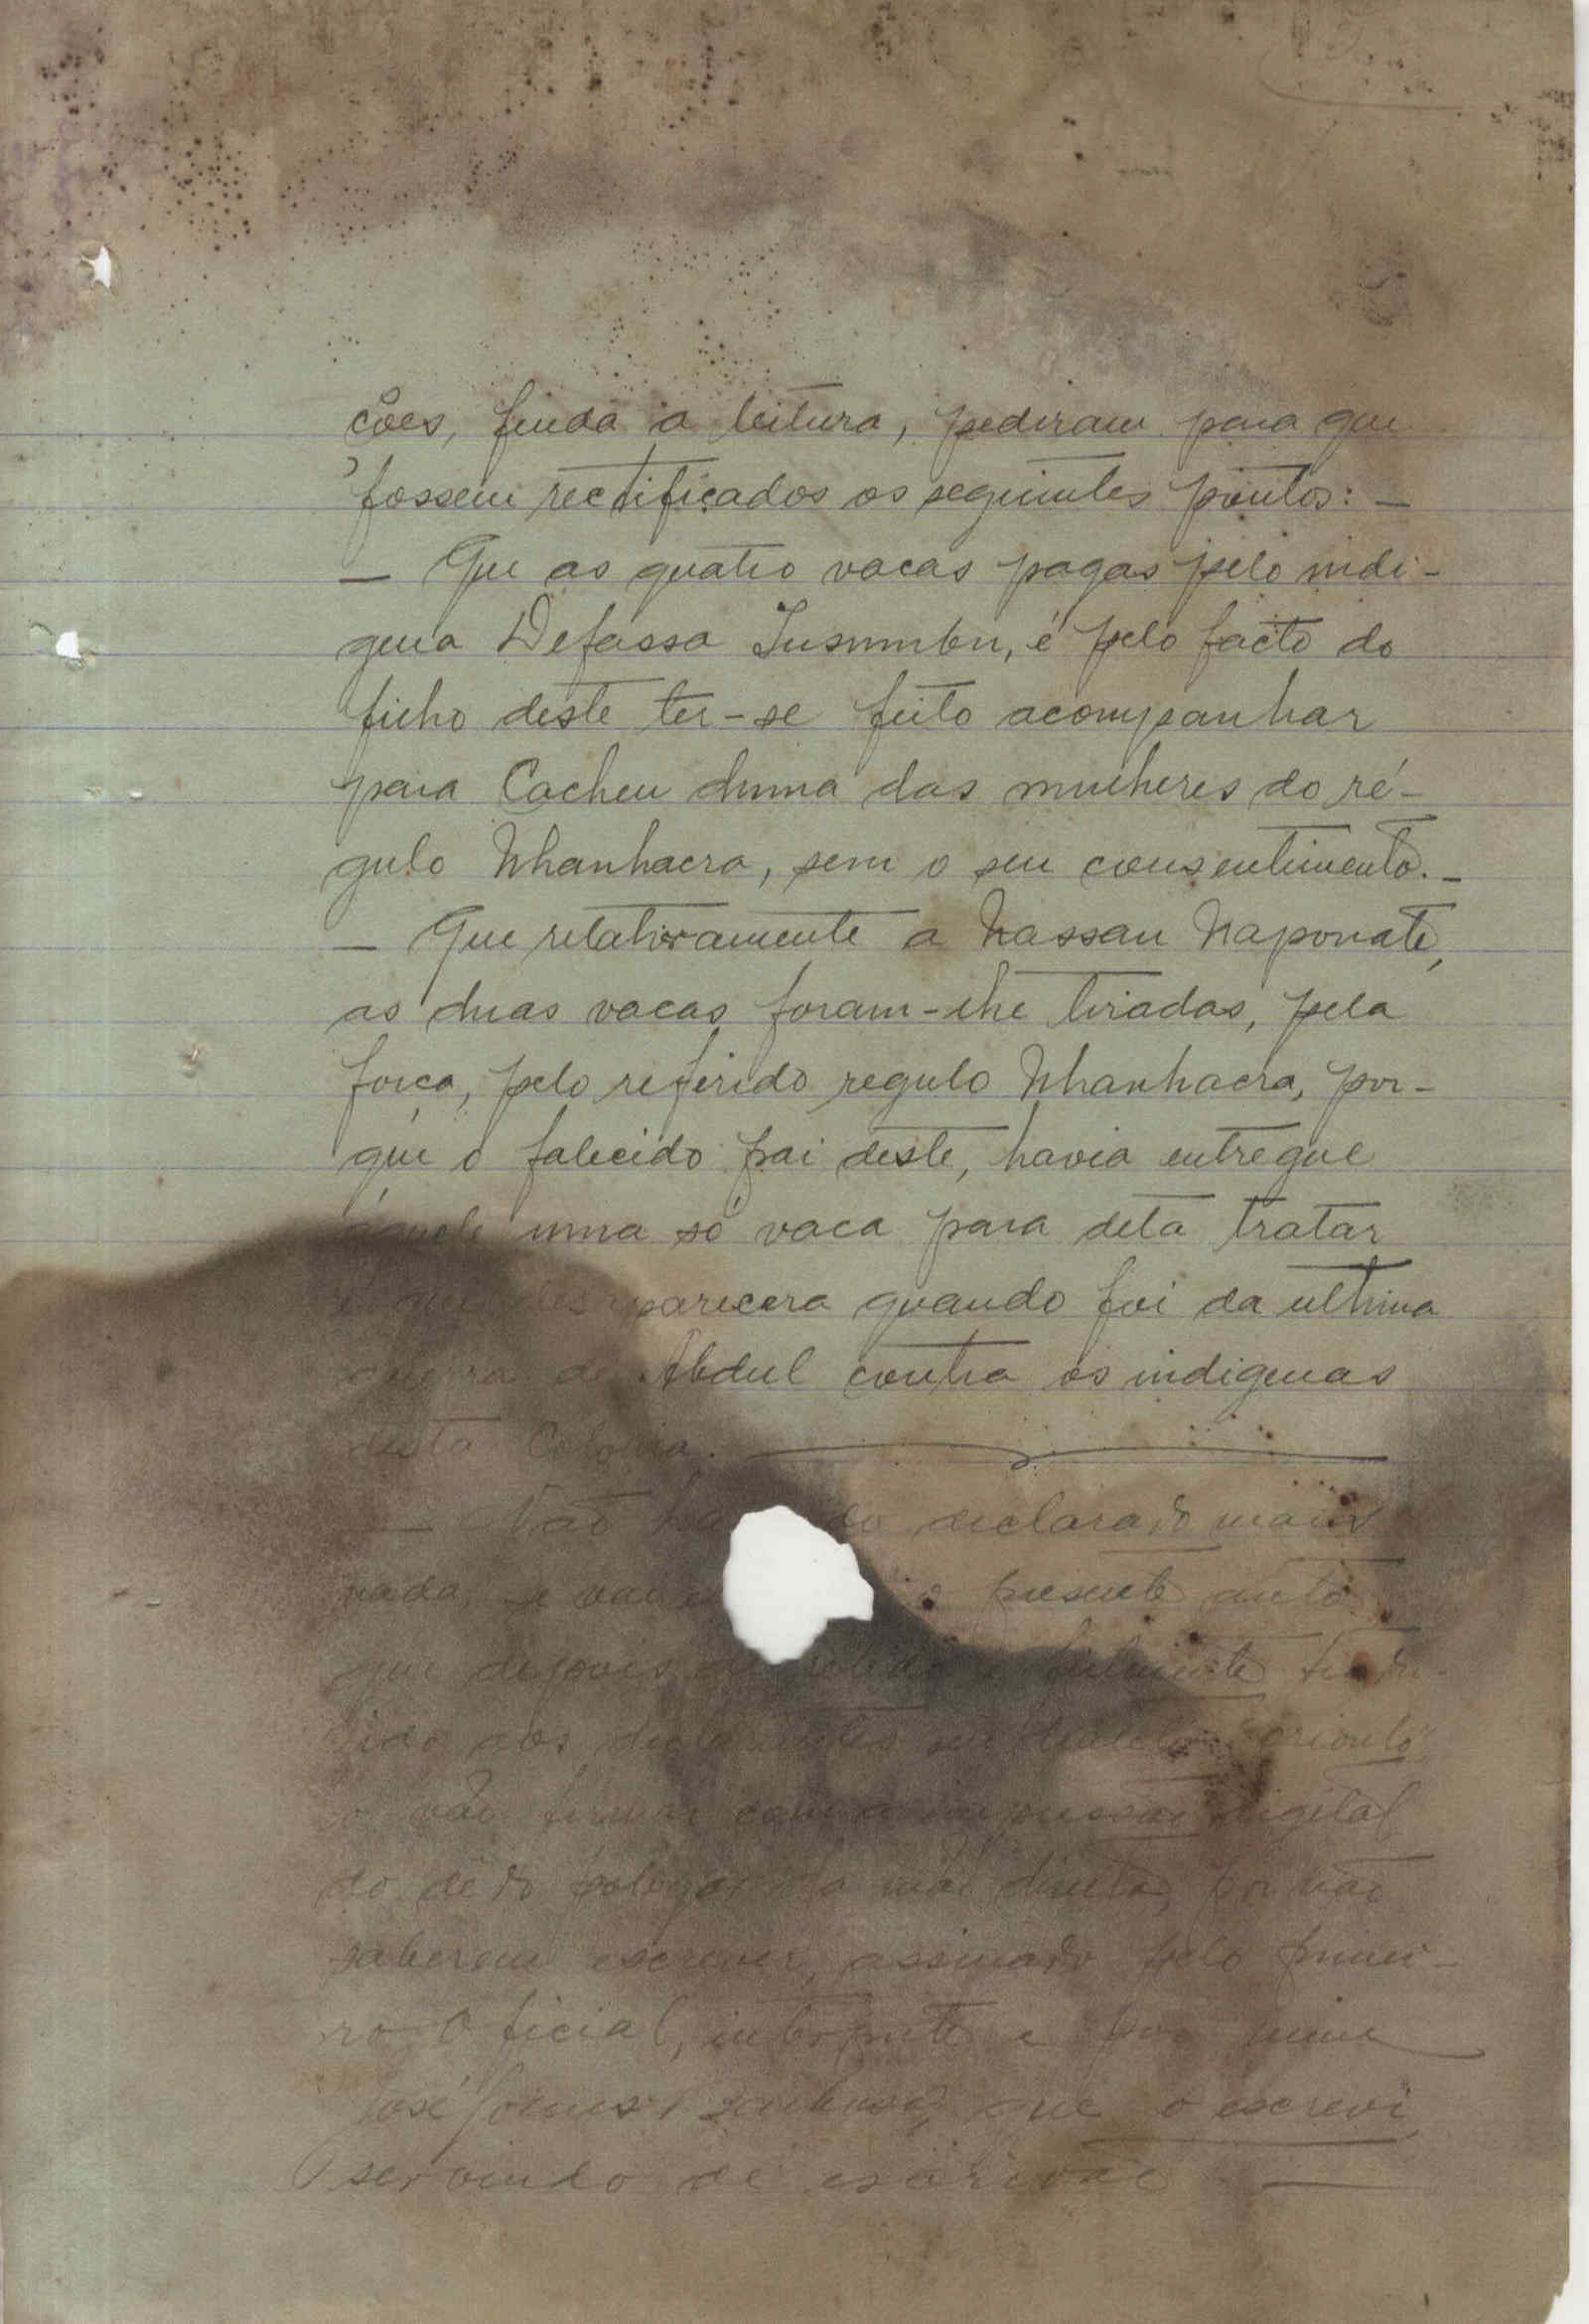 ções, finda a leitura, pediram para que
fossem rectificados os seguintes pontos: —
— Que as quatro vacas pagas pelo indi-
gena Defassa Insumbu, é pelo facto do
filho deste ter-se feito acompanhar
para Cacheu duma das mulheres do ré-
gulo Nhanhacra, sem o seu consentimento. —
— Que relativamente a Nassan Naponate,
as duas vacas foram-lhe tiradas, pela
força, pelo referido regulo Nhanhacra, por-
que o falecido pai deste, havia entregue
áquele uma só vaca para dela tratar
e que desaparecera quando foi da ultima
guerra de Abdul contra os indigenas
desta Colonia.
— Não do declarado mais
nada, se o presente auto
que depois de e fielmente tradu-
sido aos declarantes em dialecto crioulo
o vão firmar com a impressão digital
do dedo polegar da mão direita, por não
saberem escrever, assinado pelo primei-
ro Oficial, interprete e por mim
José que o escrevi
servindo de escrivão